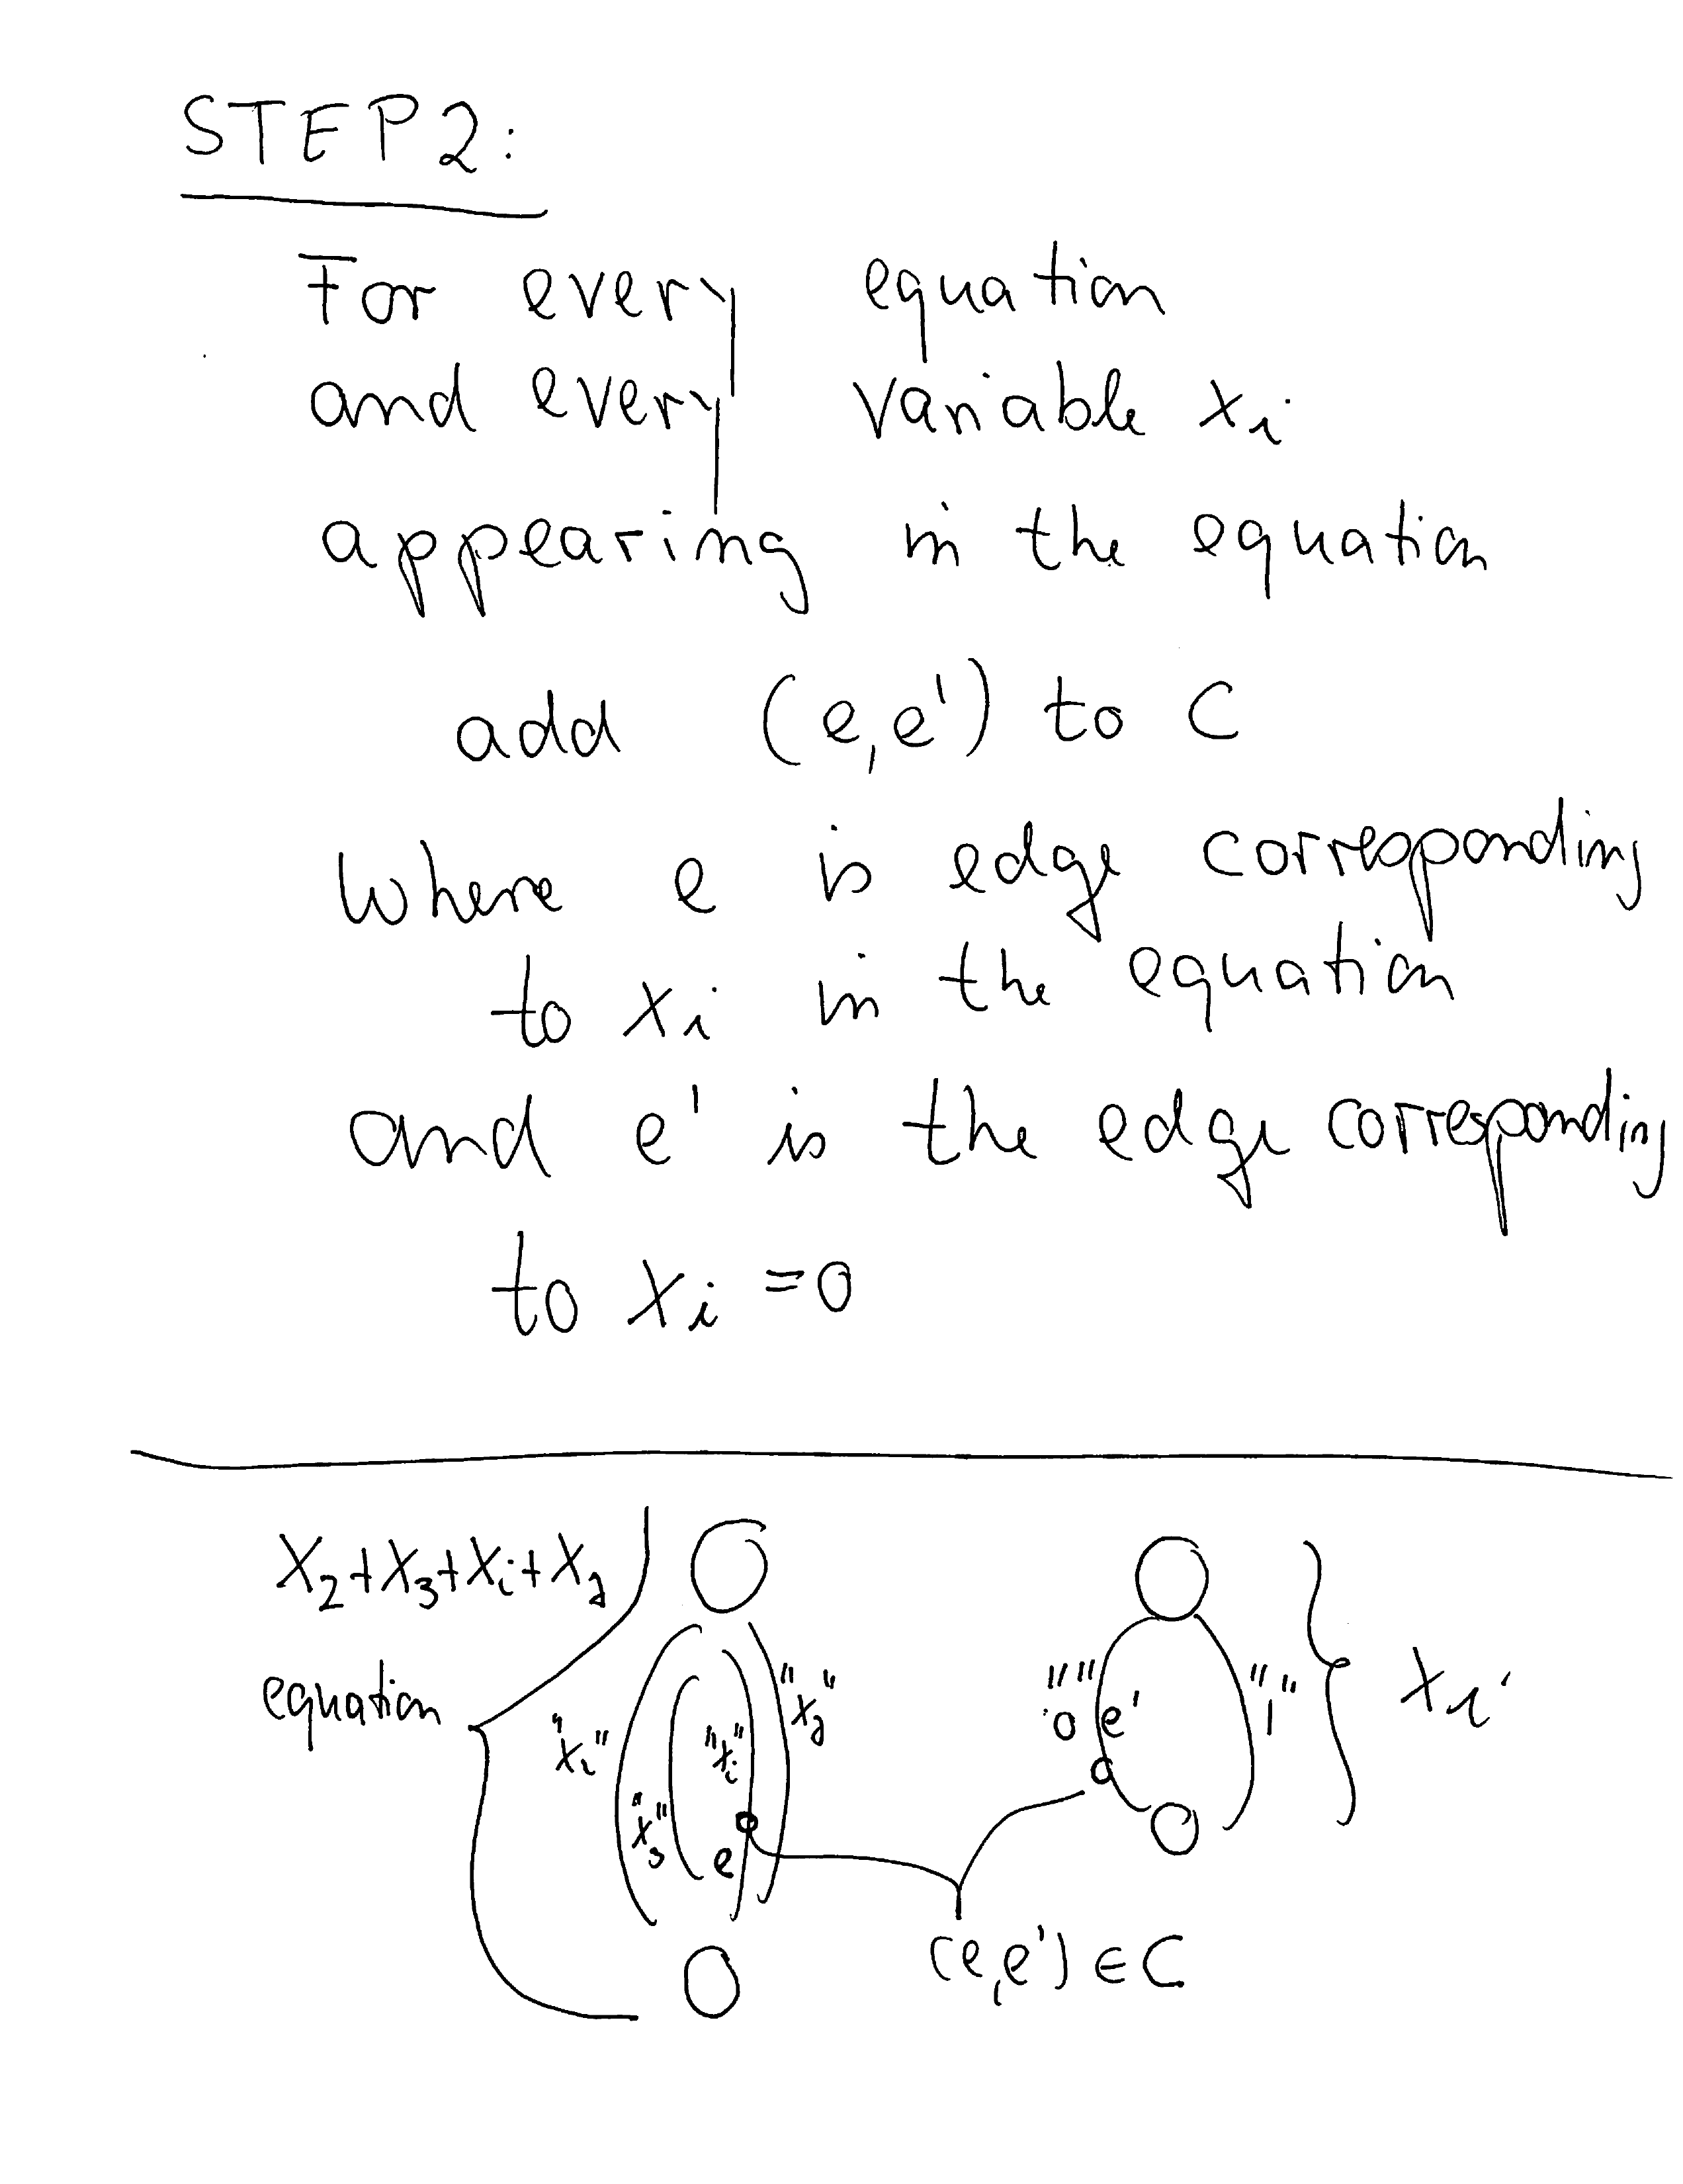 STEP2:
For every equation
and every variable xi
appearing in the equation
add (e,e') to C
Where e is edge corresponding
to xi in the equation
and e' is the edge corresponding
to xi =0
X2+X3+Xi+Xj
equation
"xi"
"x3"
"xi"
"xj"
e
"0"
e'
"1"
xi
(e,e') ∈ C